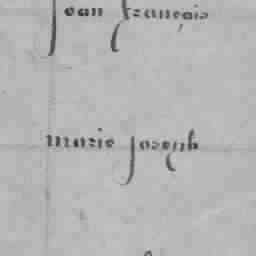 Jean françois
marie joseph